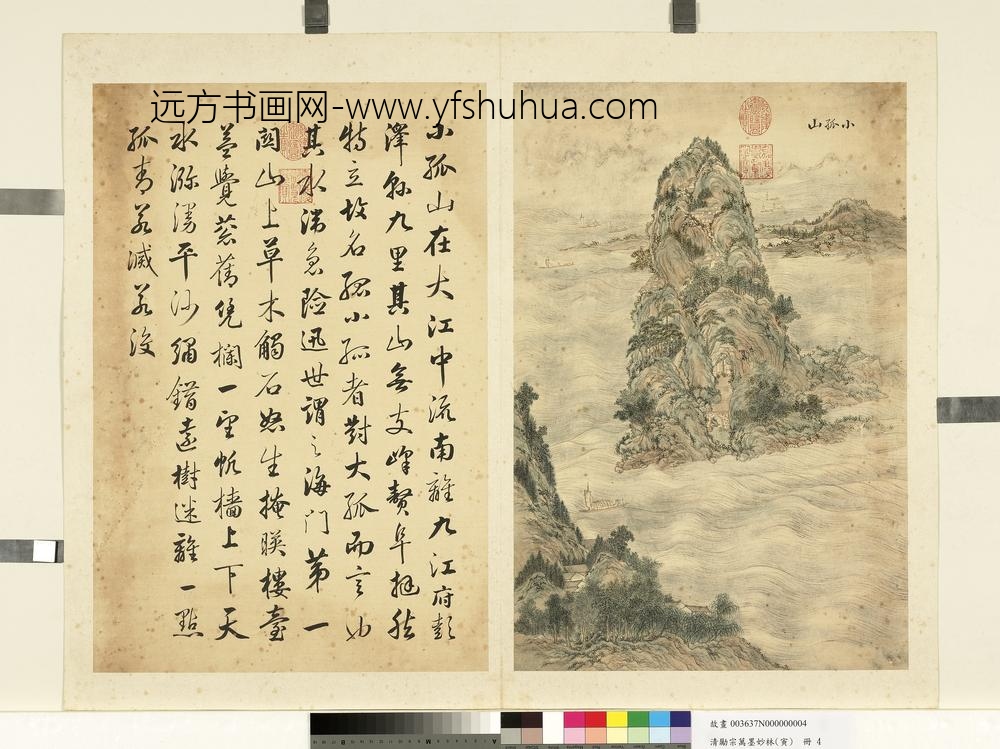 远方书画网-www.yfshuhua.com
小孤山
小孤山在大江中流南離九江府彭
澤縣九里其山無支峰贅阜挺然
特立故名孤小孤者對大孤而言也
其水湍急險迅世謂之海门苐一
関山上草木觸石怒生掩暎樓臺
益覺蒼蒨凭欄一望帆檣上下天
水瀰漫平沙繡錯遠樹迷離一點
孤青若滅若没
故畫 003637N000000004
清勵宗萬墨妙林(寅) 冊 4